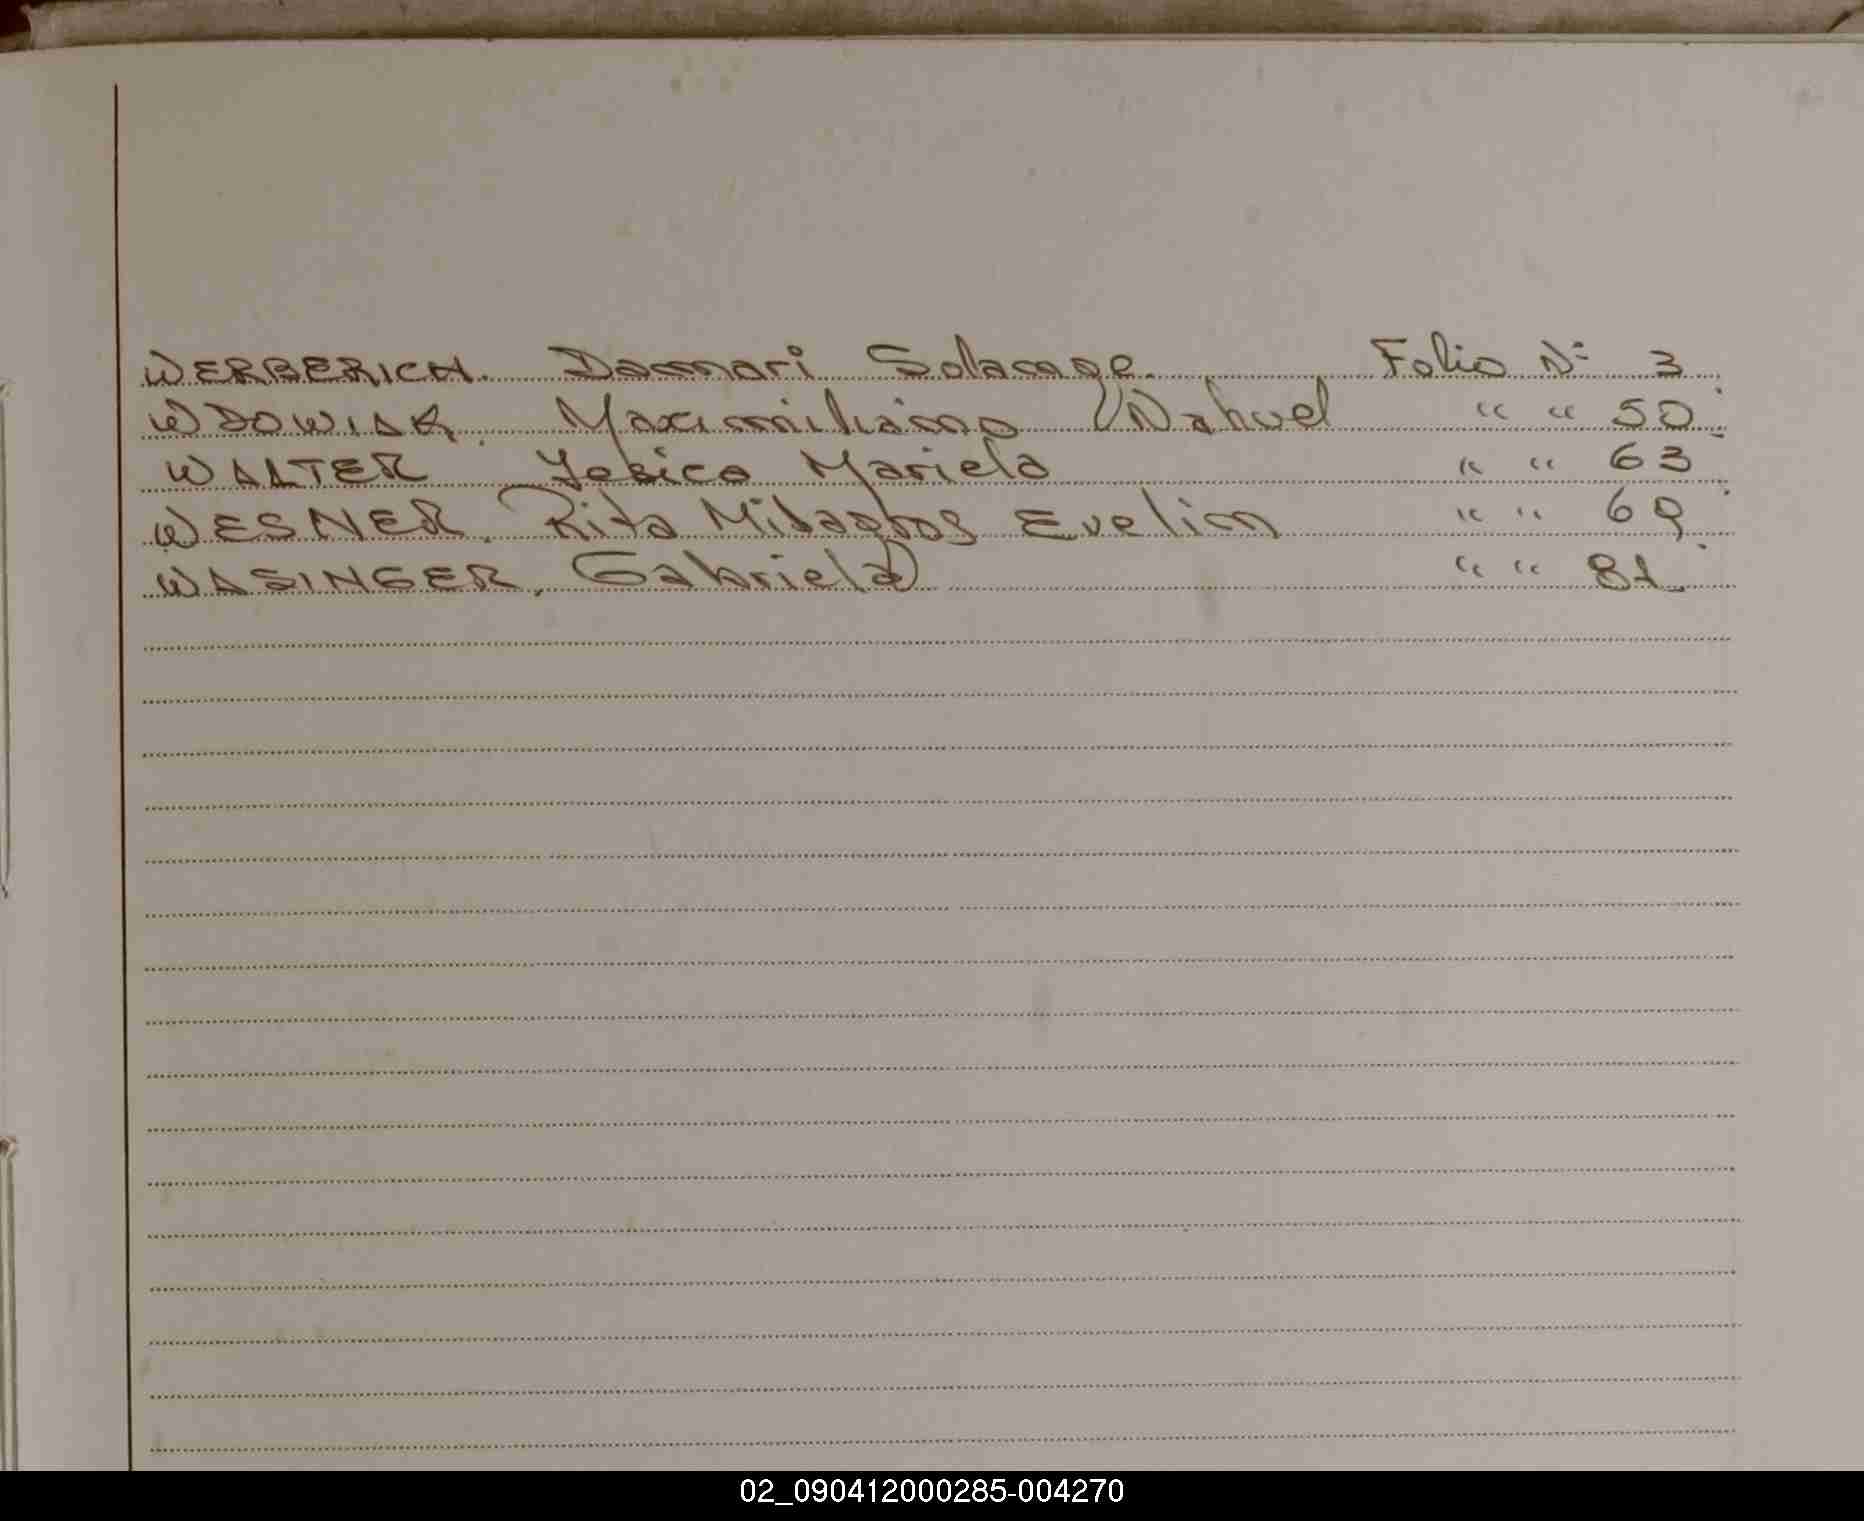 WERBERICH. Damari Solange. Folio Nº 3
WDOWIAK. Maximiliano Nahuel " " 50
WALTER Yesica Mariela " " 63
WESNER. Rita Milagros Evelin " " 69
WASINGER, Gabriela " " 81
02_090412000285-004270